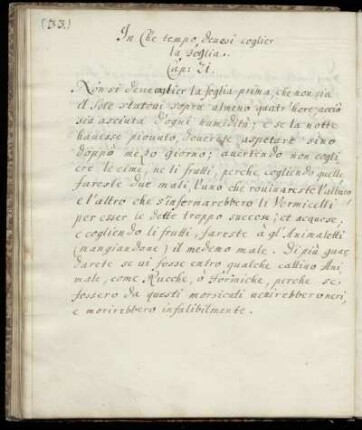 (33)
In Che tempo devesi coglier
la foglia.
Cap: 21.
Non si deve coglier la foglia prima, che non sia
il Sole statovi sopra almeno quatr'hore, acciò
sia asciuta d'ogni humidità; e se la notte
havesse piovuto, dovrete aspetare sino
doppò mezo giorno; avertendo non cogli
ere le cime, ne li frutti, perche cogliendo quelle
fareste due mali, l'uno che rouinareste l'albero
e l'altro che s'infermarebbero li Vermicelli
per esser le dette troppo succose, et acquose,
e cogliendo li frutti, fareste à gl'Animaletti
(mangiandone) il medemo male. Di più guar
darete se vi fosse entro qualche cattivo Ani
male, come Rucche, ò Formiche, perche se
fossero da questi morsicati venirebbero neri,
e morirebbero infalibilmente.